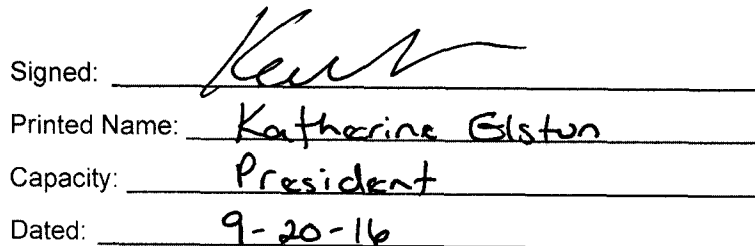 Signed:
Printed Name: Katherine Elston
Capacity: President
Dated: 9-20-16